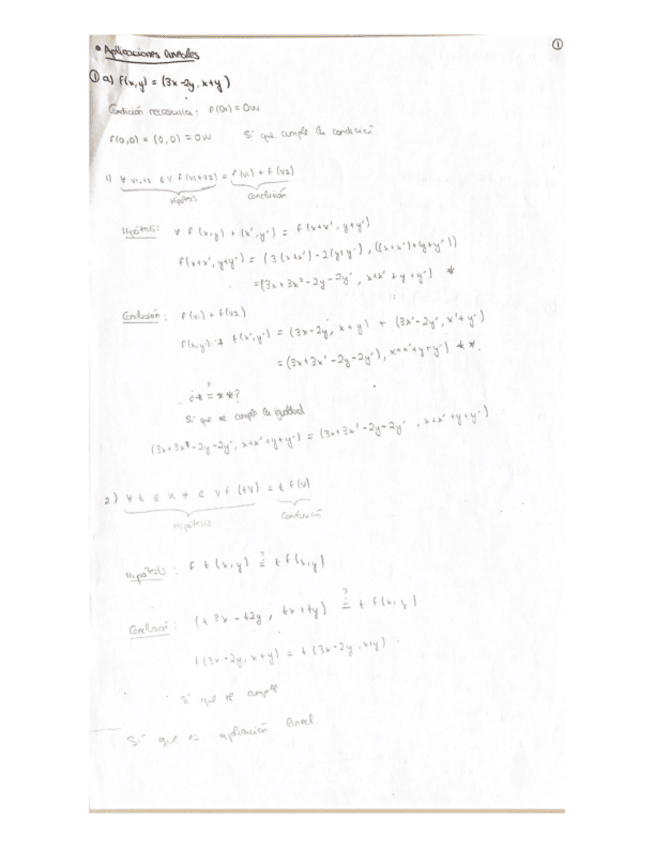 • Aplicaciones lineales ①
① a) f(x,y) = (3x-2y, x+y)
Condición necesaria: f(0v) = 0w
f(0,0) = (0,0) = 0w Si que cumple la condición
1) ∀ v1,v2 ∈ V f(v1+v2) = f(v1) + f(v2)
Hipótesis Conclusión
Hipótesis: ∀ f (x,y) + (x',y') = f(x+x', y+y')
f(x+x', y+y') = (3(x+x') - 2(y+y'), ((x+x')+(y+y'))
=(3x+3x'-2y-2y', x+x'+y+y') *
Conclusión: f(v1) + f(v2)
f(x,y) + f(x',y') = (3x-2y, x+y) + (3x'-2y', x'+y')
= (3x+3x'-2y-2y'), x+x'+y+y') **.
¿* ?= **?
Si que se cumple la igualdad
(3x+3x'-2y-2y', x+x'+y+y') = (3x+3x'-2y-2y', x+x'+y+y')
2) ∀ t ∈ K ∀ ∈ V f(tv) = t f(v)
Hipótesis Conclusión
Hipótesis: f t(x,y) ?= t f(x,y)
Conclusión: (t3x-t2y, tx+ty) ?= t f(x,y)
t(3x-2y, x+y) = t(3x-2y, x+y).
Si que se cumple
Si que es aplicación lineal.